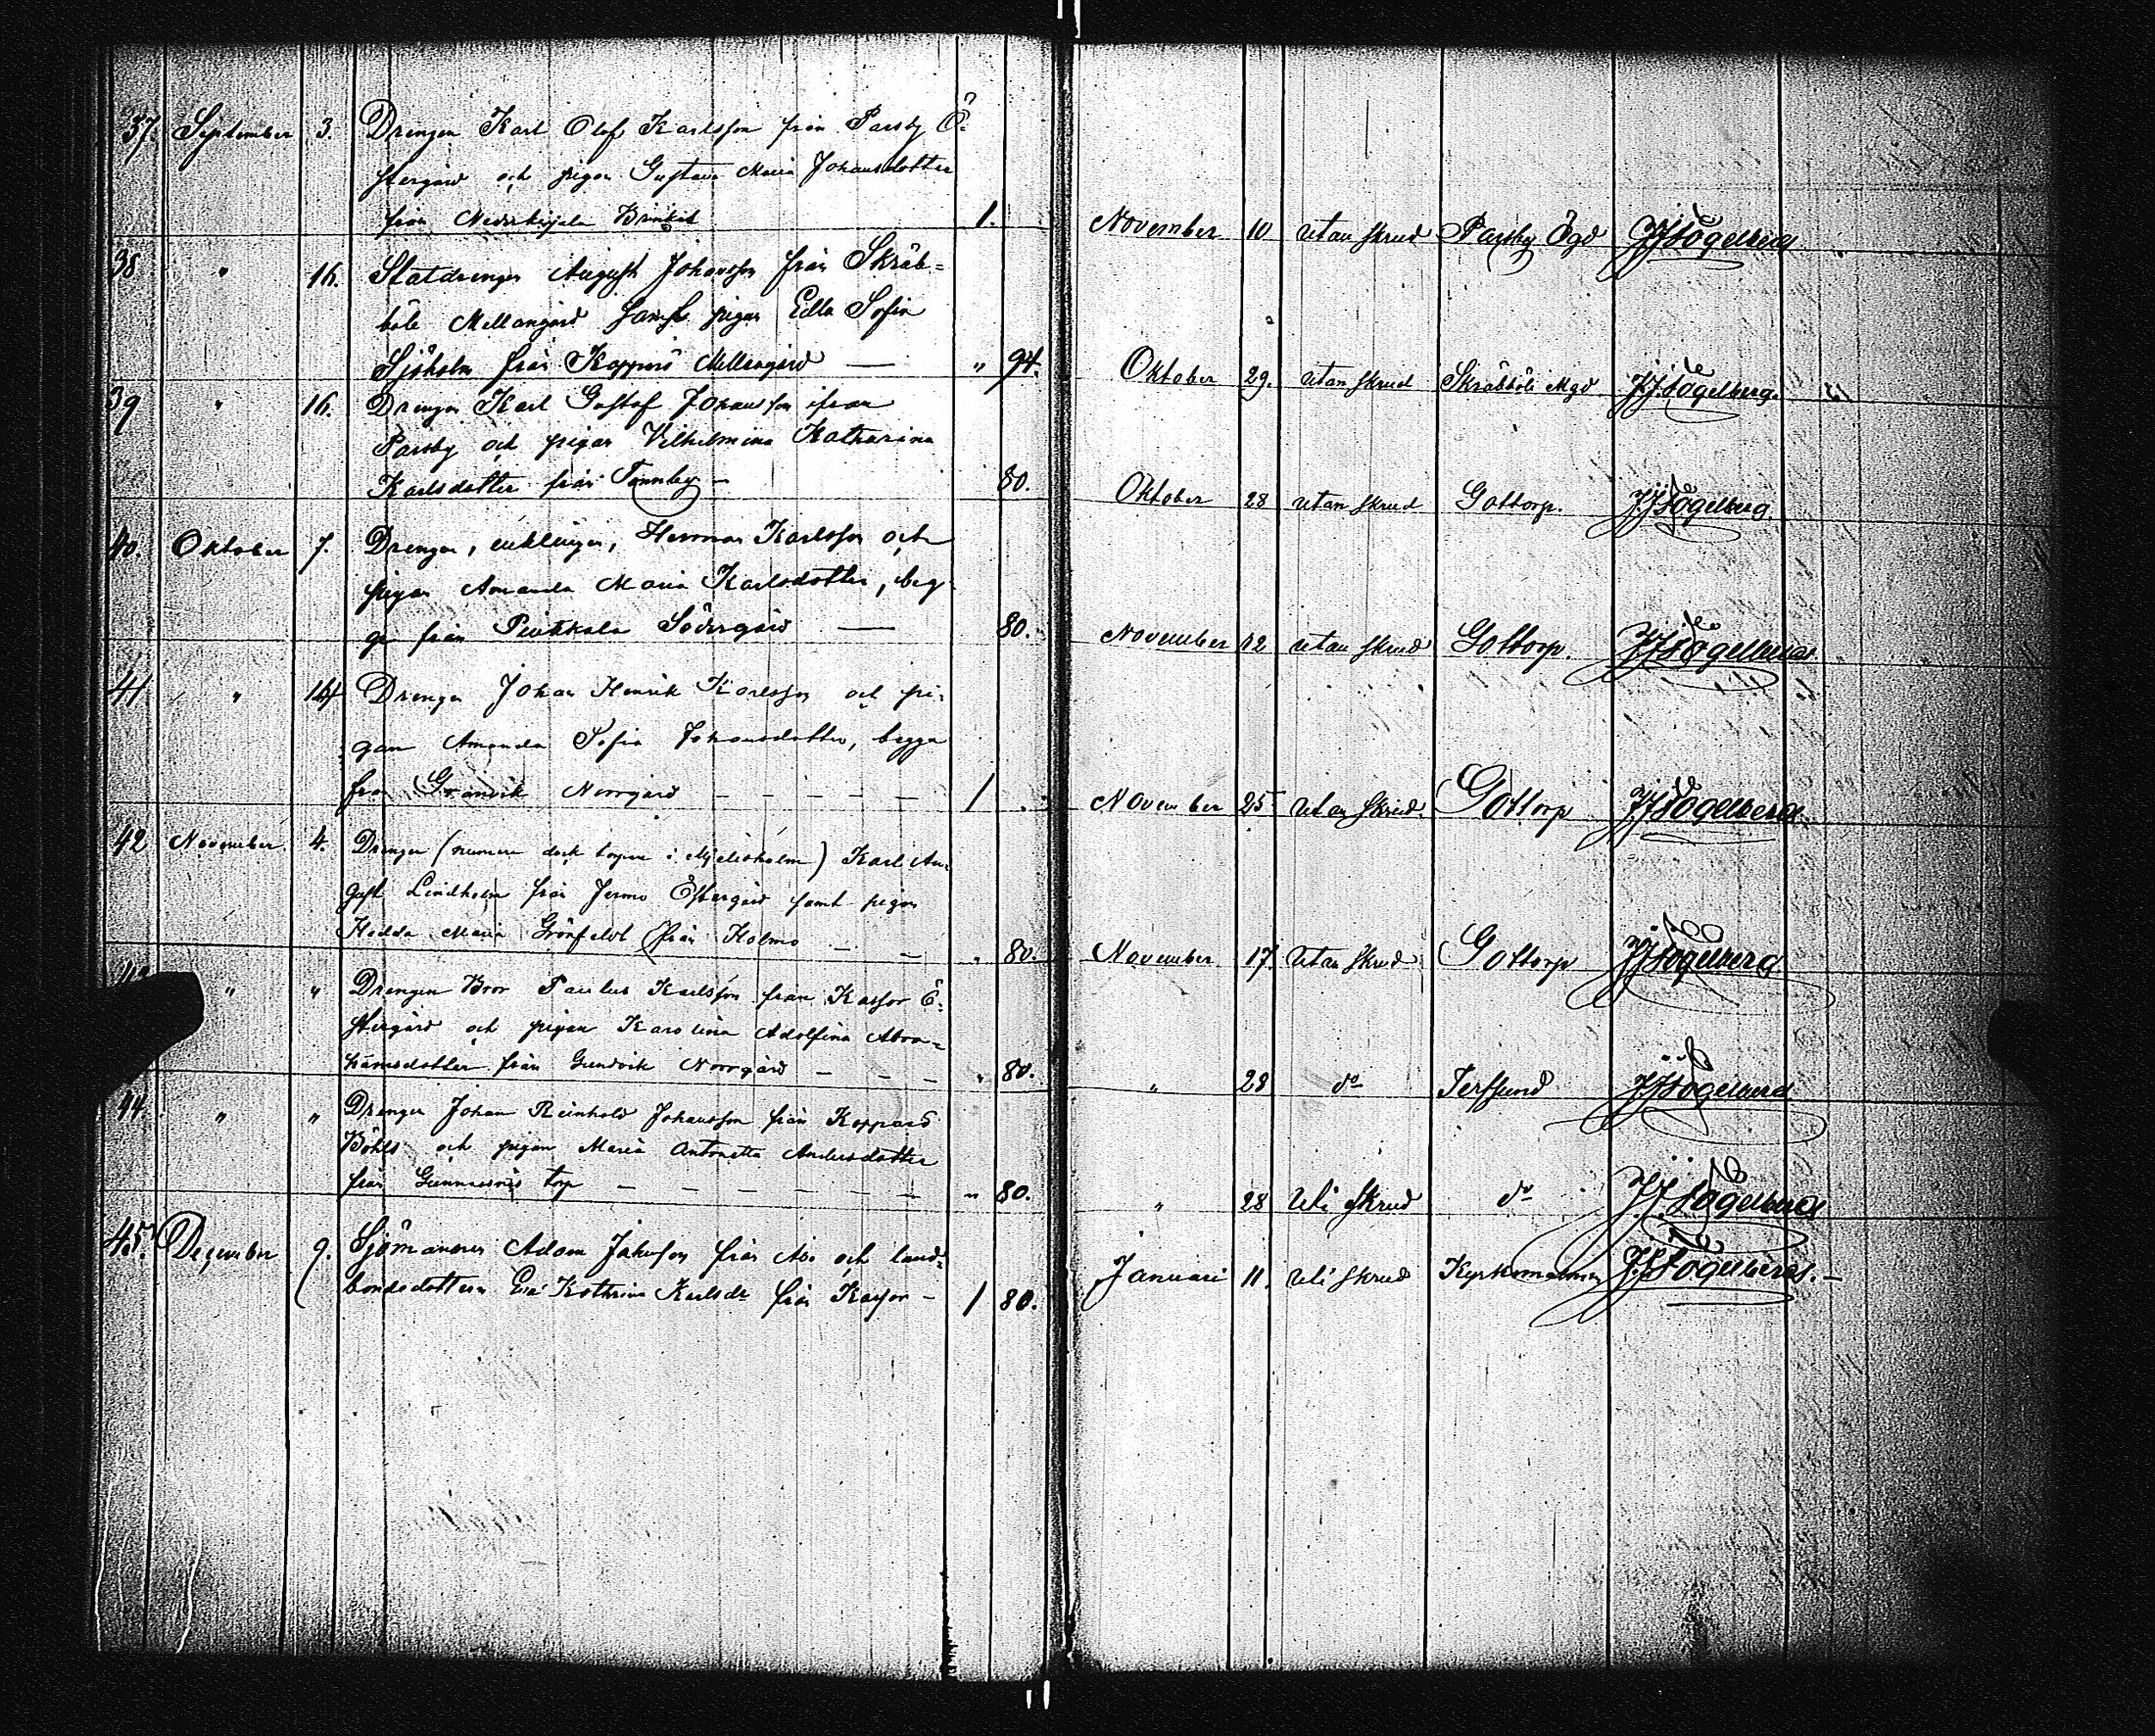 37. September 3. Drengen Karl Olof Karlsson från Parsby Ö-
stergård och pigan Gustava Maria Johansdotter
från Brinkas 1. November 10 utan skrud Parsby Ögd JJFogelberg
38 " 16. Statdrengen August Johansson från Skräb-
böle Mellangård samt pigan Edla Sofia
Sjöholm från Koppars Mellangård — " 94. Oktober 29. utan skrud Skräbböle Mgd J.J.Fogelberg.
39 " 16. Drengen Karl Gustaf Johansson ifrån
Parsby och pigan Vilhelmina Katharina
Karlsdotter från Tennby — 80. Oktober 28 utan skrud Gottorp. J.JFogelberg.
40. Oktober 7. Drengen, enklingen, Herman Karlsson och
pigan Amanda Maria Karlsdotter, beg-
ge från Södergård — 80. November 12 utan skrud Gottorp. JJFogelberg
41 " 14 Drengen Johan Henrik Karlsson och pi-
gan Amanda Sofia Johansdotter, begge
från Granvik Norrgård — — — — — 1 November 25 utan skrud. Gottorp JJFogelberg.
42 November 4. Drengen (numera dock torpare i ) Karl Au-
gust Lindholm från Jermo Östergård samt pigan
Hedda Maria Grönfeldt från Kolmo — — " 80. November 17. utan skrud Gottorp JJFogelberg
" " Drengen Bror Paulus Karlsson från Kassor Ö-
stergård och pigan Karolina Adolfina Abra-
hamsdotter från Gundvik Norrgård — — — " 80. " 28 do Terssund JJFogelberg
44. " " Drengen Johan Reinhold Johansson från Koppars
Böhls och pigan Maria Antonetta Andersdotter
från torp — — — — — — " 80. " 28 uti skrud do J.J.Fogelberg
45. December 9. Sjömannen Adam Jakobsson från Åbo och land-
bondedottern Eva Kathrina Karlsdr från Kassor — 1 80. Januari 11. uti skrud Kyrkomalmen J.J.Fogelberg. —